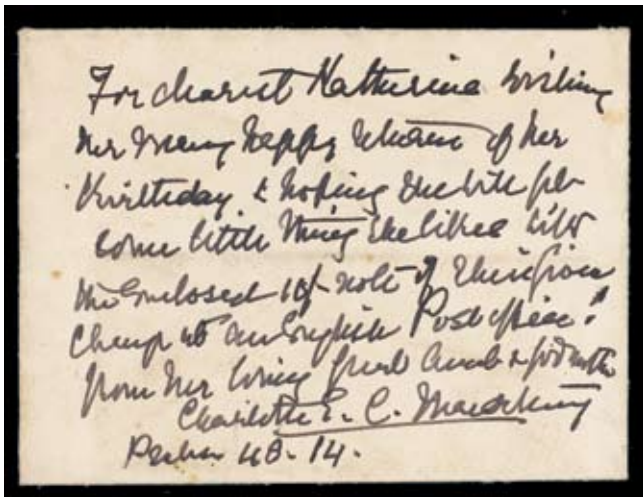 For dearest Katherine wishing
her many happy returns of her
Birthday & hoping she will get
some little thing she likes with
the enclosed 10/- note
at an English Post Office!
from her loving great aunt & godmother
Charlotte E. C.
14.